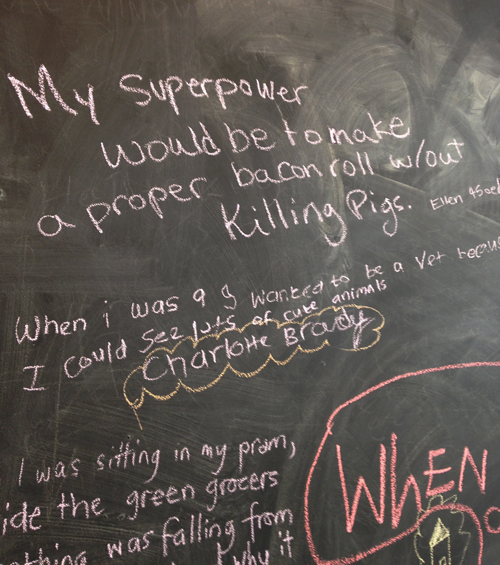 My Superpower
would be to make
a proper bacon roll w/out
Killing Pigs. Ellen
When i was 9 I wanted to be a vet
I could see lots of cute animals
Charlotte Brady
I was sitting in my pram,
ide the green grocers
thing was falling from
why it
WHEN